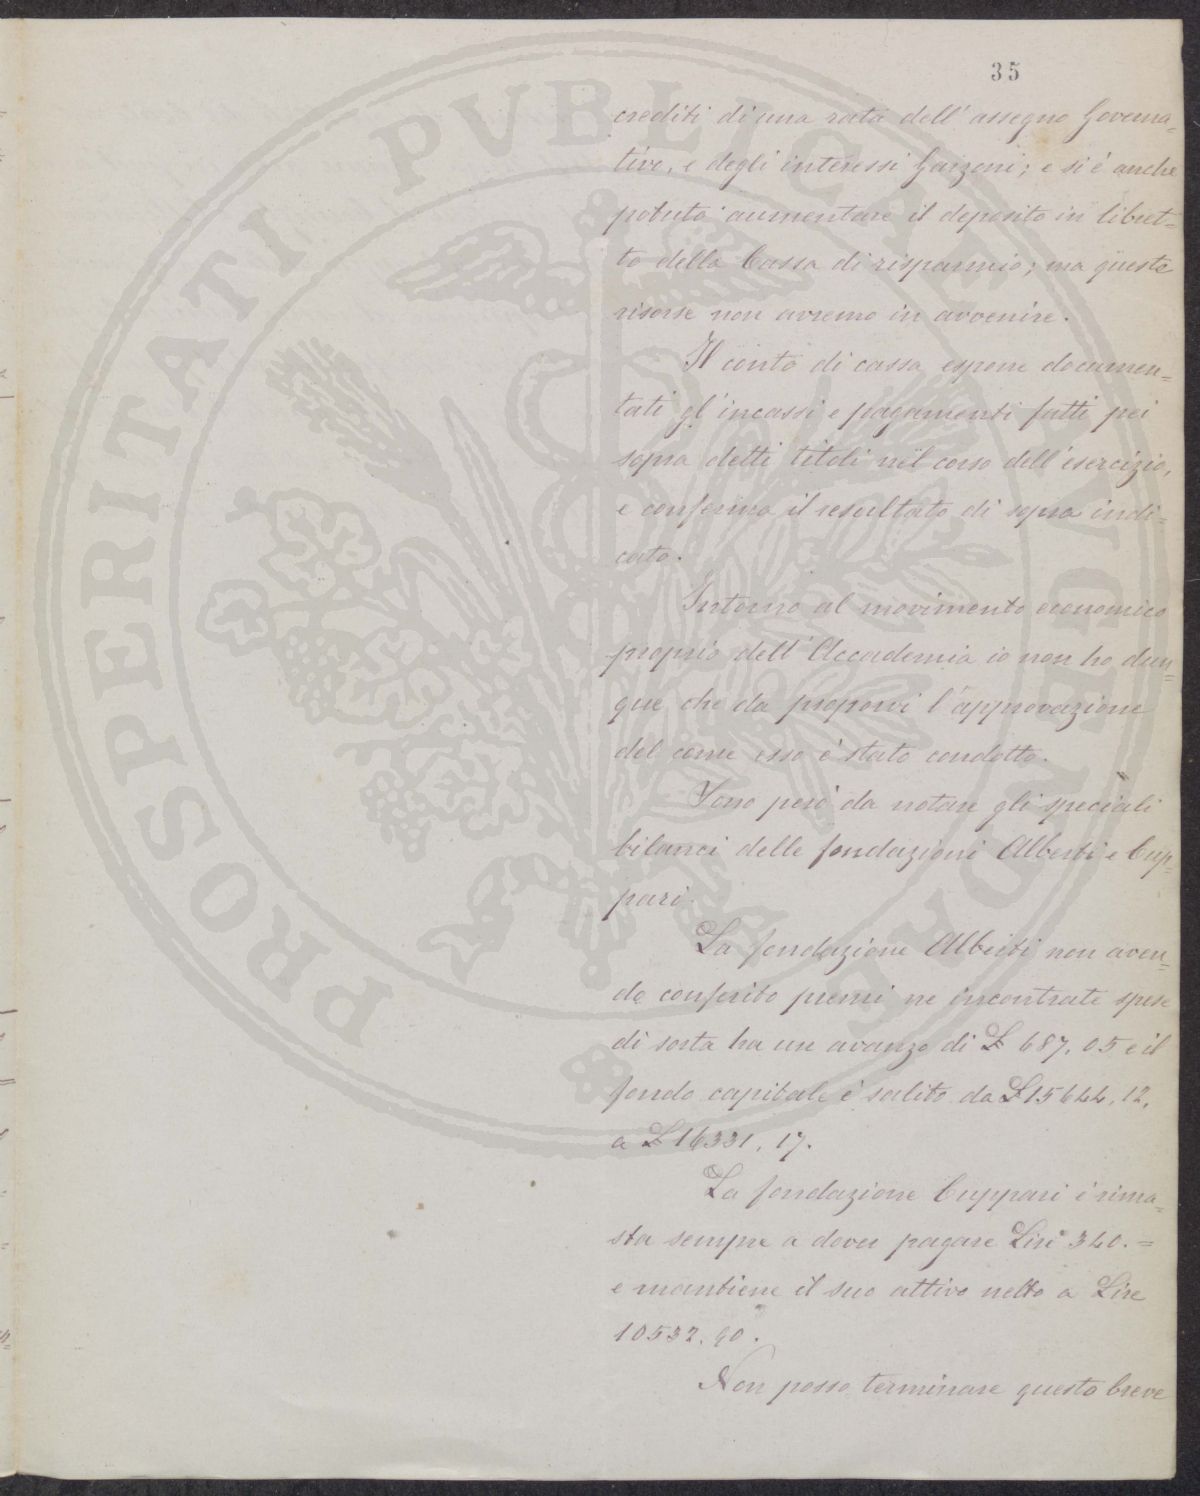 35
crediti di una rata dell'assegno Governa=
tivo, e degli interessi Garzoni; e si è anche
potuto aumentare il deposito in libret=
to della Cassa di risparmio; ma queste
risorse non avremo in avvenire.
Il conto di cassa espone documen=
tati gl'incassi e pagamenti fatti pei
sopra detti titoli nel corso dell'esercizio,
e conferma il resultato di sopra indi=
cato.
Intorno al movimento economico
proprio dell'Accademia io non ho dun=
que che da proporvi l'approvazione
del come esso è stato condotto.
Sono però da notare gli speciali
bilanci delle fondazioni Alberti e Cup=
pari.
La fondazione Alberti non aven=
do conferito premi ne incontrate spese
di sorta ha un avanzo di £ 687,05 e il
fondo capitale è salito da £ 15644,12,
a £ 16331,17.
La fondazione Cuppari è rima=
sta sempre a dover pagare Lire 340.=
e mantiene il suo attivo netto a Lire
10532.90.
Non posso terminare questo breve
PROSPERITATI PVBLICAE AVGENDAE